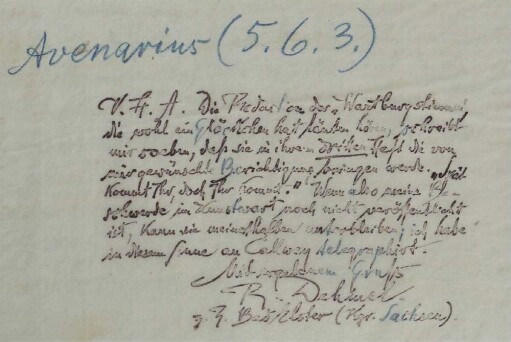 Avenarius (5. 6. 3.)
V. H. A. Die Redaction der „Wartburgstimmen“,
die wohl ein Glöckchen hat läuten hören, schreibt
mir soeben, daß sie in ihrem dritten Heft die von
mir gewünschte Berichtigung bringen werde. „Spät
kommt Ihr, doch Ihr kommt.“ Wenn also meine
Beschwerde im Kunstwart noch nicht veröffentlicht
ist, kann sie meinethalben unterbleiben; ich habe
in diesem Sinne an Callwey telegraphirt.
Mit ergebenem Gruß
R. Dehmel
z. Z. Bad Elster (Kgr. Sachsen).